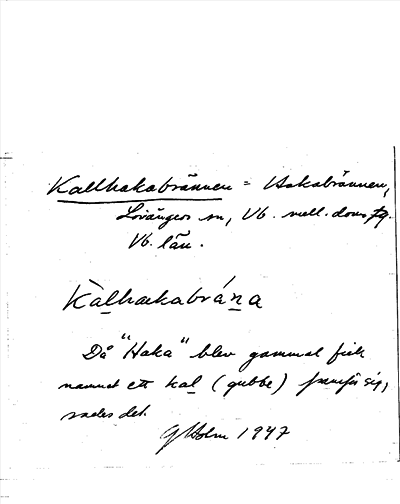 Kallhakabrännen = Hakabrännen,
Lövångers sn, Vb. mell. doms fg.
Vb. län.
Kàlhackabrána
Då "Haka" blev gammal fick
namnet ett kal (gubbe) framför sig,
sades det.
G Holm 1947